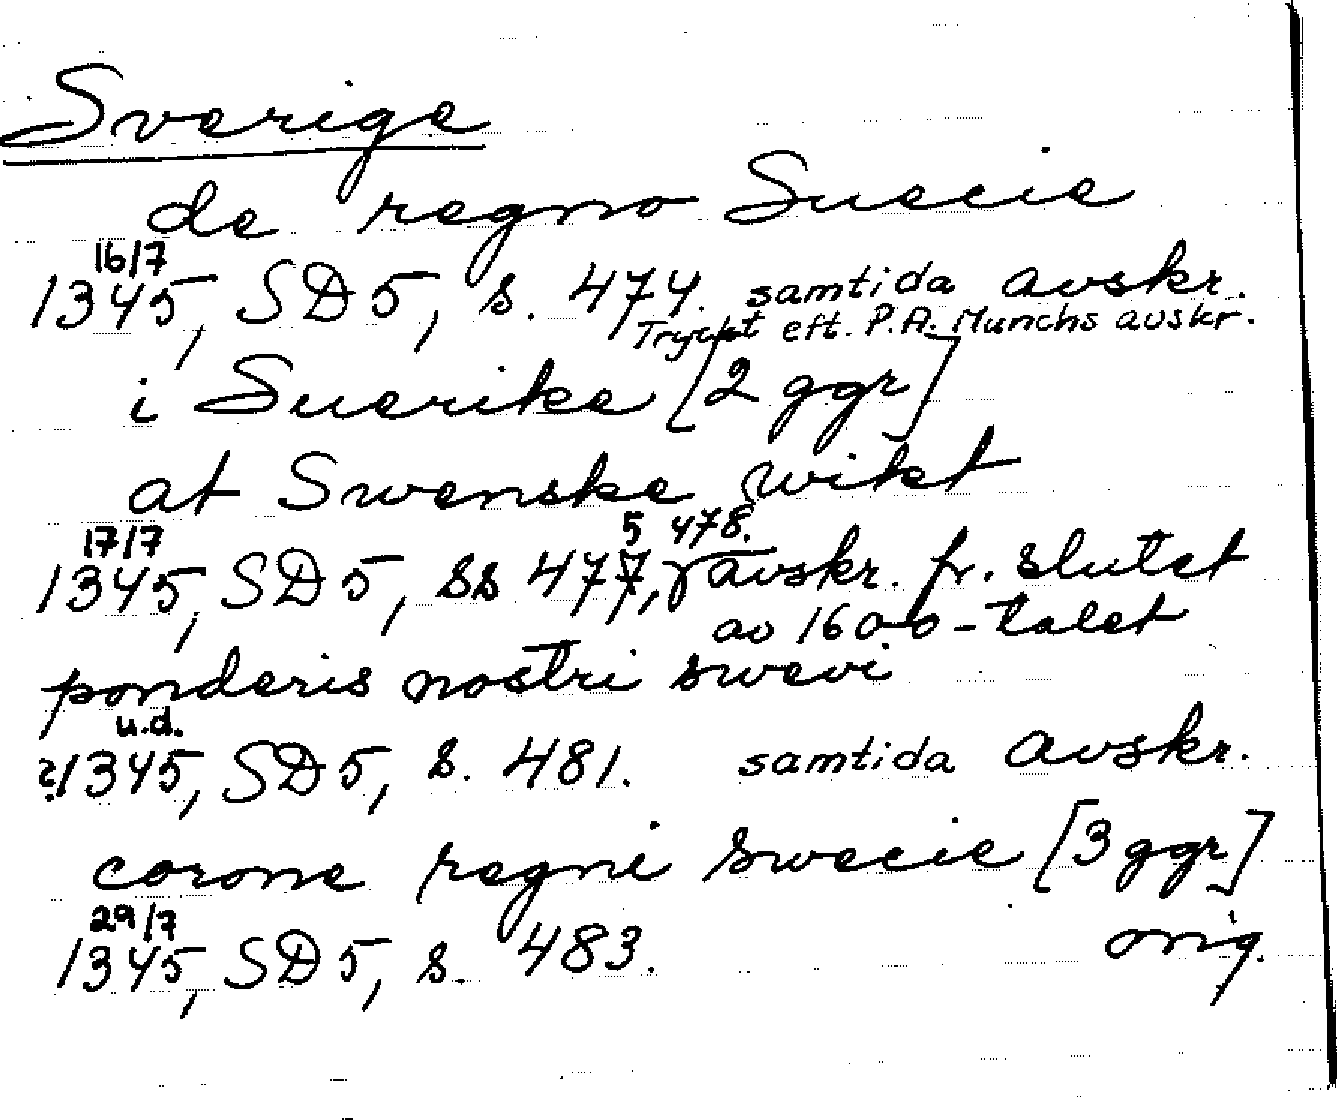 Sverige
de regno Suecie
16/7
1345, SD 5, s. 474. samtida avskr.
Tryckt eft. P.A. Munchs avskr.
i Suerike [2 ggr]
at Swenske wikt
17/7 5 478.
1345, SD 5, ss 477, avskr. fr. slutet
av 1600-talet
ponderis nostri swevi
u.d.
?1345, SD 5, s. 481. samtida avskr.
corone regni swecie [3 ggr]
29/7
1345, SD 5, s. 483. orig.